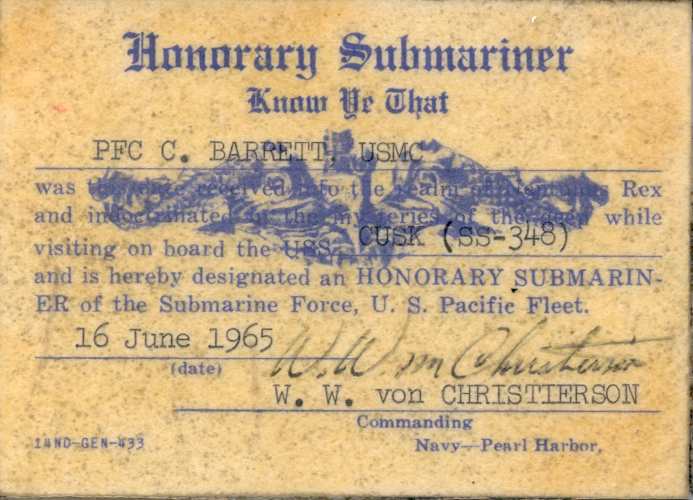 Honorary Submariner
Know Ye That
PFC C. BARRETT, USMC
was this date received into the realm of Neptunus Rex
and indoctrinated in the mysteries of the deep while
visiting on board the USS CUSK (SS-348)
and is hereby designated an HONORARY SUBMARIN-
ER of the Submarine Force, U. S. Pacific Fleet.
16 June 1965
(date)
W. W. von Christierson
W. W. von CHRISTIERSON
Commanding
14ND-GEN-433
Navy—Pearl Harbor,